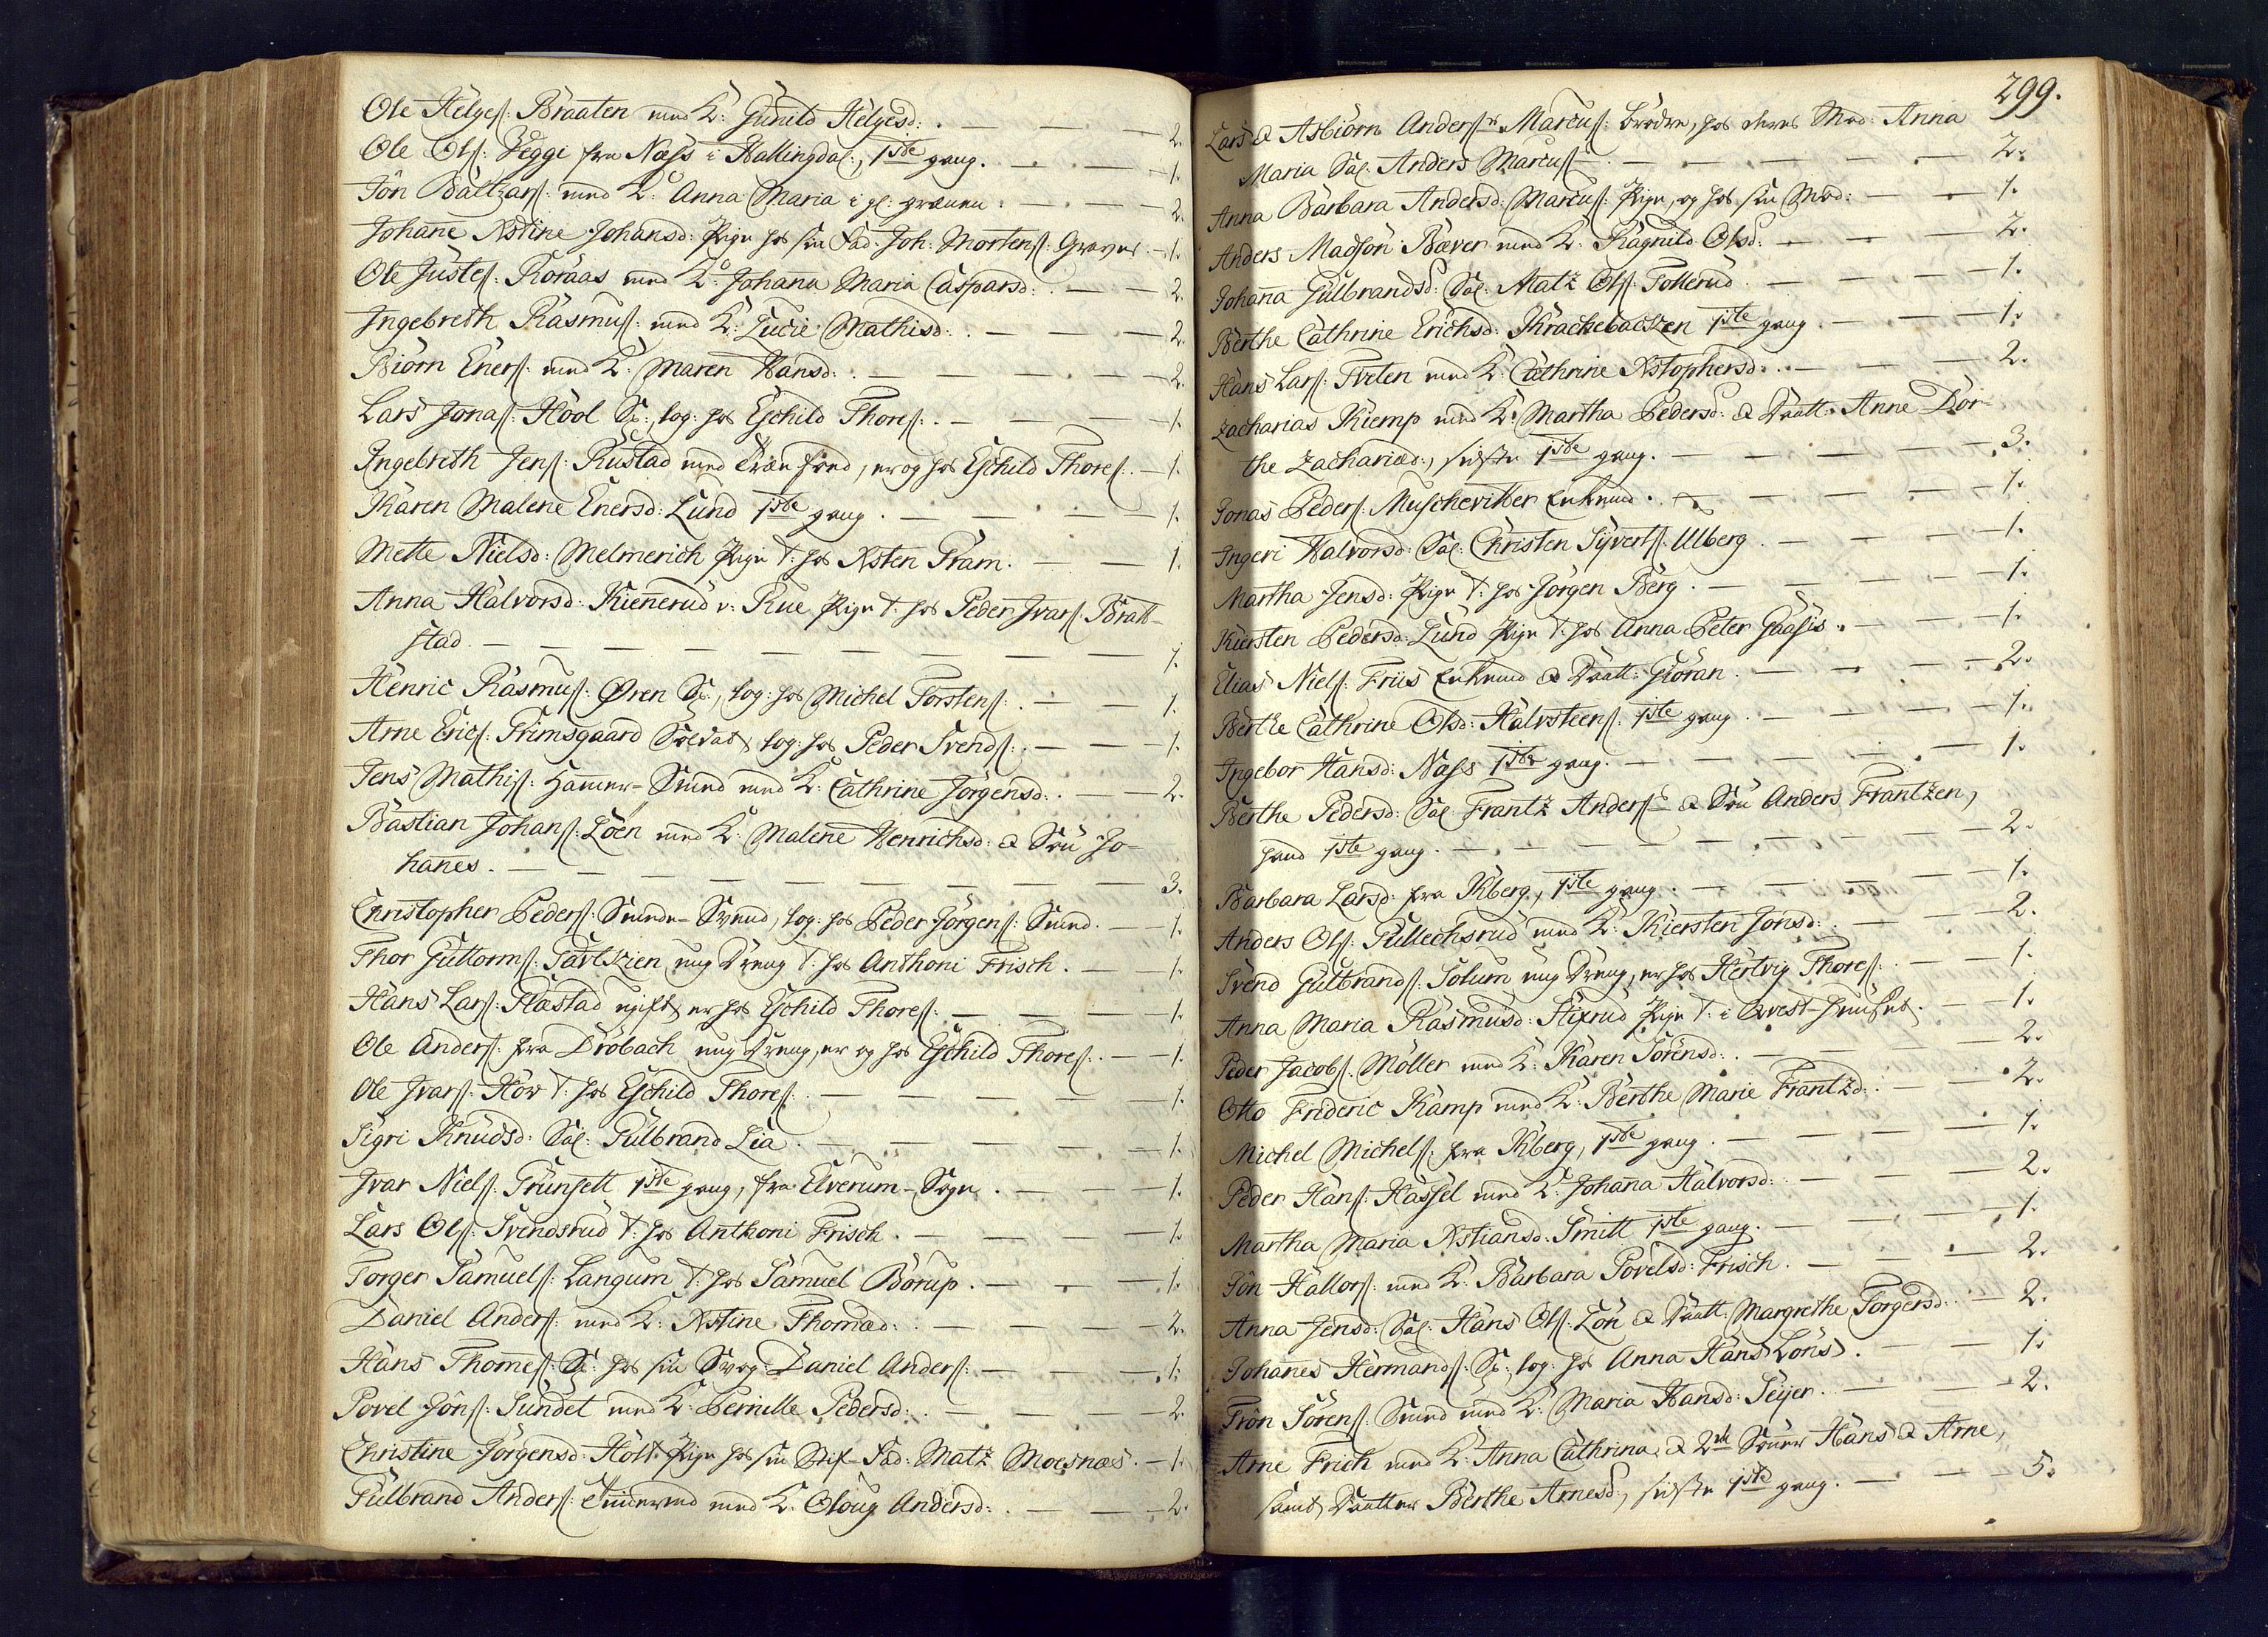 Ole Helges: Braaten med K: Gunild Helgesd: . — — — 2.
Ole Ols: Vegge fra Næss i Hallingdal, 1ste gang. — — — 1.
Jön Baltzars: med K: Anna Maria i gl: græuen. — — — 2.
Johanne Xstine Johansd: Pige hos sin Fad: Joh: Mortens: Graver — 1.
Ole Justes: Roraas med K: Johanna Maria Caspersd: — — 2.
Ingebreth Rasmus: med K: Lucie Mathisd: . — — — 2.
Biörn Eners: med K: Maren Hansd: . — — — — 2.
Lars Jonas: Hool S:, log: hos Eschild Thores: . — — — 1.
Ingebreth Jens: Rustad med Træ-foed, er og hos Eschild Thores: . — 1.
Karen Malene Enersd: Lund 1ste gang. — — — 1.
Mette Nielsd: Melmerich Pige t: hos Xsten Fram. — — 1.
Anna Halvorsd: Kiennerud v: Rue, Pige t: hos Peder Ivars: Bratt-
stad. — — — — — — — — 1.
Henric Rasmus: Øren S:, log: hos Michel Torstens: . — — 1.
Arne Erics: Grimsgaard Soldat, log: hos Peder Svends: . — — 1.
Jens Mathis: Hamer-Smed med K: Cathrine Jörgensd: . — — 2.
Bastian Johans: Löen med K: Malene Henrichsd: & Sön Jo-
hannes. — — — — — — — — 3.
Christopher Peders: Smede-Svend, log: hos Peder Jörgens: Smed. — 1.
Thor Guttorms: ung Dreng t: hos Anthoni Frisch. — 1.
Hans Lars: Flæstad ugift, er hos Eschild Thores: . — — — 1.
Ole Anders: fra Dröbach ung Dreng, er og hos Eschild Thores: . — 1.
Ole Ivars: How t: hos Eschild Thores: . — — — — 1.
Sigri Knudsd: Sal: Gulbrand Lia. — — — — 1.
Ivar Niels: Grunsett 1ste gang, fra Elverum-Sogn. — — 1.
Lars Ols: Svendsrud t: hos Anthoni Frisch. — — — 1.
Torger Samuels: Langum t: hos Samuel Börup. — — — 1.
Daniel Anders: med K: Xstine Thomæd: . — — — 2.
Hans Thomes: S: hos sin Svog: Daniel Anders: — — — 1.
Povel Jöns: Sundet med K: Pernille Pedersd: . — — — 2.
Christine Jörgensd: Holt Pige hos sin Stif-Fad: Matz Moesnæs. — 1.
Gulbrand Anders: med K: Oloug Andersd: . — — 2.
299.
Lars & Asbiörn Anders: Marcus: brödre, hos deres Mod: Anna
Maria Sal: Anders Marcus: — — — — — 2.
Anna Barbara Andersd: Marcus: Pige, og hos sin Mod: — — 1.
Anders Madsön Bæver med K: Ragnild Olsd: — — — 2.
Johanna Gulbrandsd: Sal: Matz Ols: Tollerud. — — — 1.
Berthe Cathrine Erichsd: Krackebacken 1ste gang. — — 1.
Hans Lars: Tveten med K: Cathrine Xstophersd: . — — 2.
Zacharias Kiemp med K: Martha Pedersd: & Daatt: Anne Dor-
the Zachariæd:, sidste 1ste gang. — — — — 3.
Jonas Peders: Muschevitter Enkemd. — — — — 1.
Ingeri Halvorsd: Sal: Christen Syverts: Ulberg. — — — 1.
Martha Jensd: Pige t: hos Jörgen Berg. — — — — 1.
Kiersten Pedersd: Lund Pige t: hos Anna Peter Gaasis. — — 1.
Elias Niels: Friis Enkemd & Daatt: Giöran. — — — 2.
Berthe Cathrine Olsd: Halvsteens: 1ste gang. — — — 1.
Ingebor Hansd: Næss 1ste gang. — — — — 1.
Berthe Pedersd: Sal: Frantz Anders: & Sön Anders Frantzen,
hand 1ste gang. — — — — — — 2.
Barbara Larsd: fra Kberg, 1ste gang. — — — 1.
Anders Ols: Gullechsrud med K: Kiersten Jonsd: . — — 2.
Svend Gulbrands: Solum ung Dreng, er hos Hertvig Thores: — 1.
Anna Maria Rasmusd: Stixrud Pige t: i Qvest-Huuset. — 1.
Peder Jacobs: Möller med K: Karen Sörensd: . — — — 2.
Otto Frideric Kamp med K: Berthe Marie Frantzd: . — — 2.
Michel Michels: fra Kberg, 1ste gang. — — — 1.
Peder Hans: Hassel med K: Johanna Halvorsd: . — — 2.
Martha Maria Xstiansd: Smitt 1ste gang. — — — 1.
Jön Hallors: med K: Barbara Povelsd: Frisch. — — — 2.
Anna Jensd: Sal: Hans Ols: Lön & Daatt: Margrethe Torgersd: . — 2.
Johannes Hermands: S: log: hos Anna Hans Löns. — — 1.
Trön Sörens: Smed med K: Maria Hansd: Seijer. — — 2.
Arne Frich med K: Anna Cathrina, & 2de Sönner Hans & Arne,
samt Daatter Berthe Arnesd:, sidste 1ste gang. — — — 5.